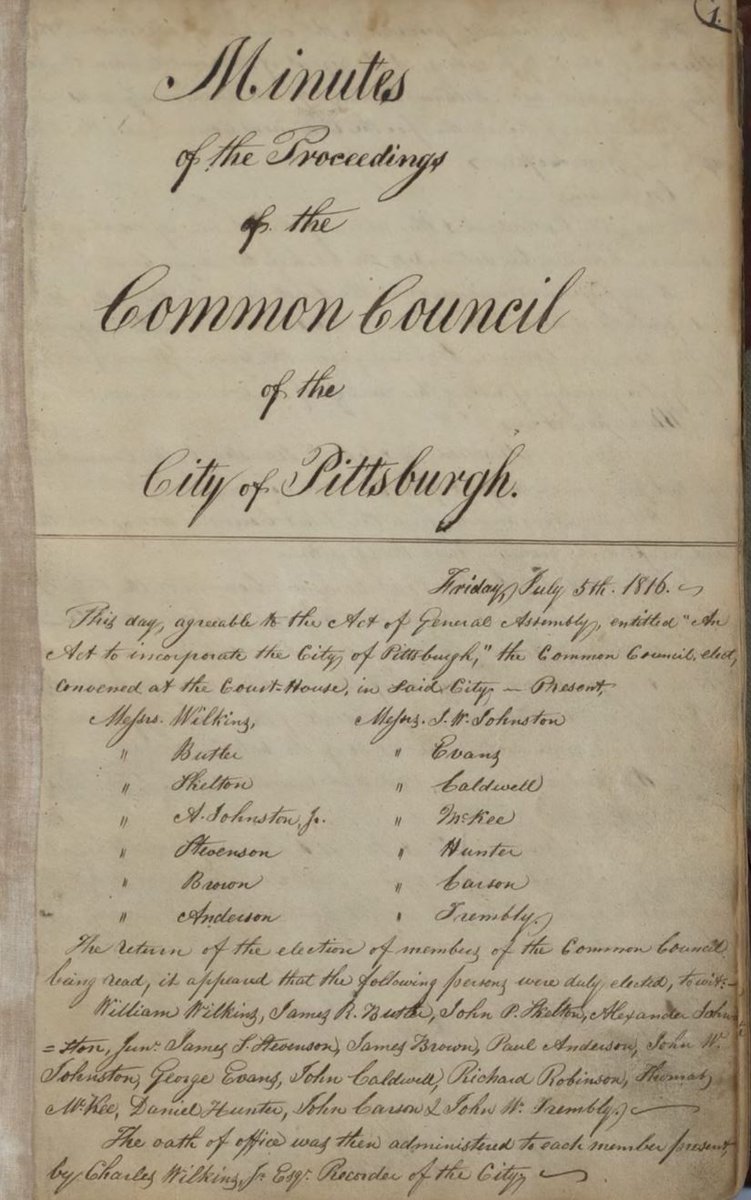 1.
Minutes
of the Proceedings
of the
Common Council
of the
City of Pittsburgh.
Friday, July 5th. 1816.
This day, agreeable to the Act of General Assembly, entitled "An
Act to incorporate the City of Pittsburgh," the Common Council elect,
convened at the Court-House, in said City — Present,
Messrs. Wilkins, Messrs. J. W. Johnston
" Butler " Evans
" Skelton " Caldwell
" A. Johnston, Jr. " McKee
" Stevenson " Hunter
" Brown " Carson
" Anderson " Trembly,
The return of the election of members of the Common Council
being read, it appeared that the following persons were duly elected, to wit:—
William Wilkins, James R. Butler, John P. Skelton, Alexander John
=ston, Junr. James S. Stevenson, James Brown, Paul Anderson, John W.
Johnston, George Evans, John Caldwell, Richard Robinson, Thomas
McKee, Daniel Hunter, John Carson & John W. Trembly.
The oath of office was then administered to each member present,
by Charles Wilkins, Jr. Esqr. Recorder of the City,